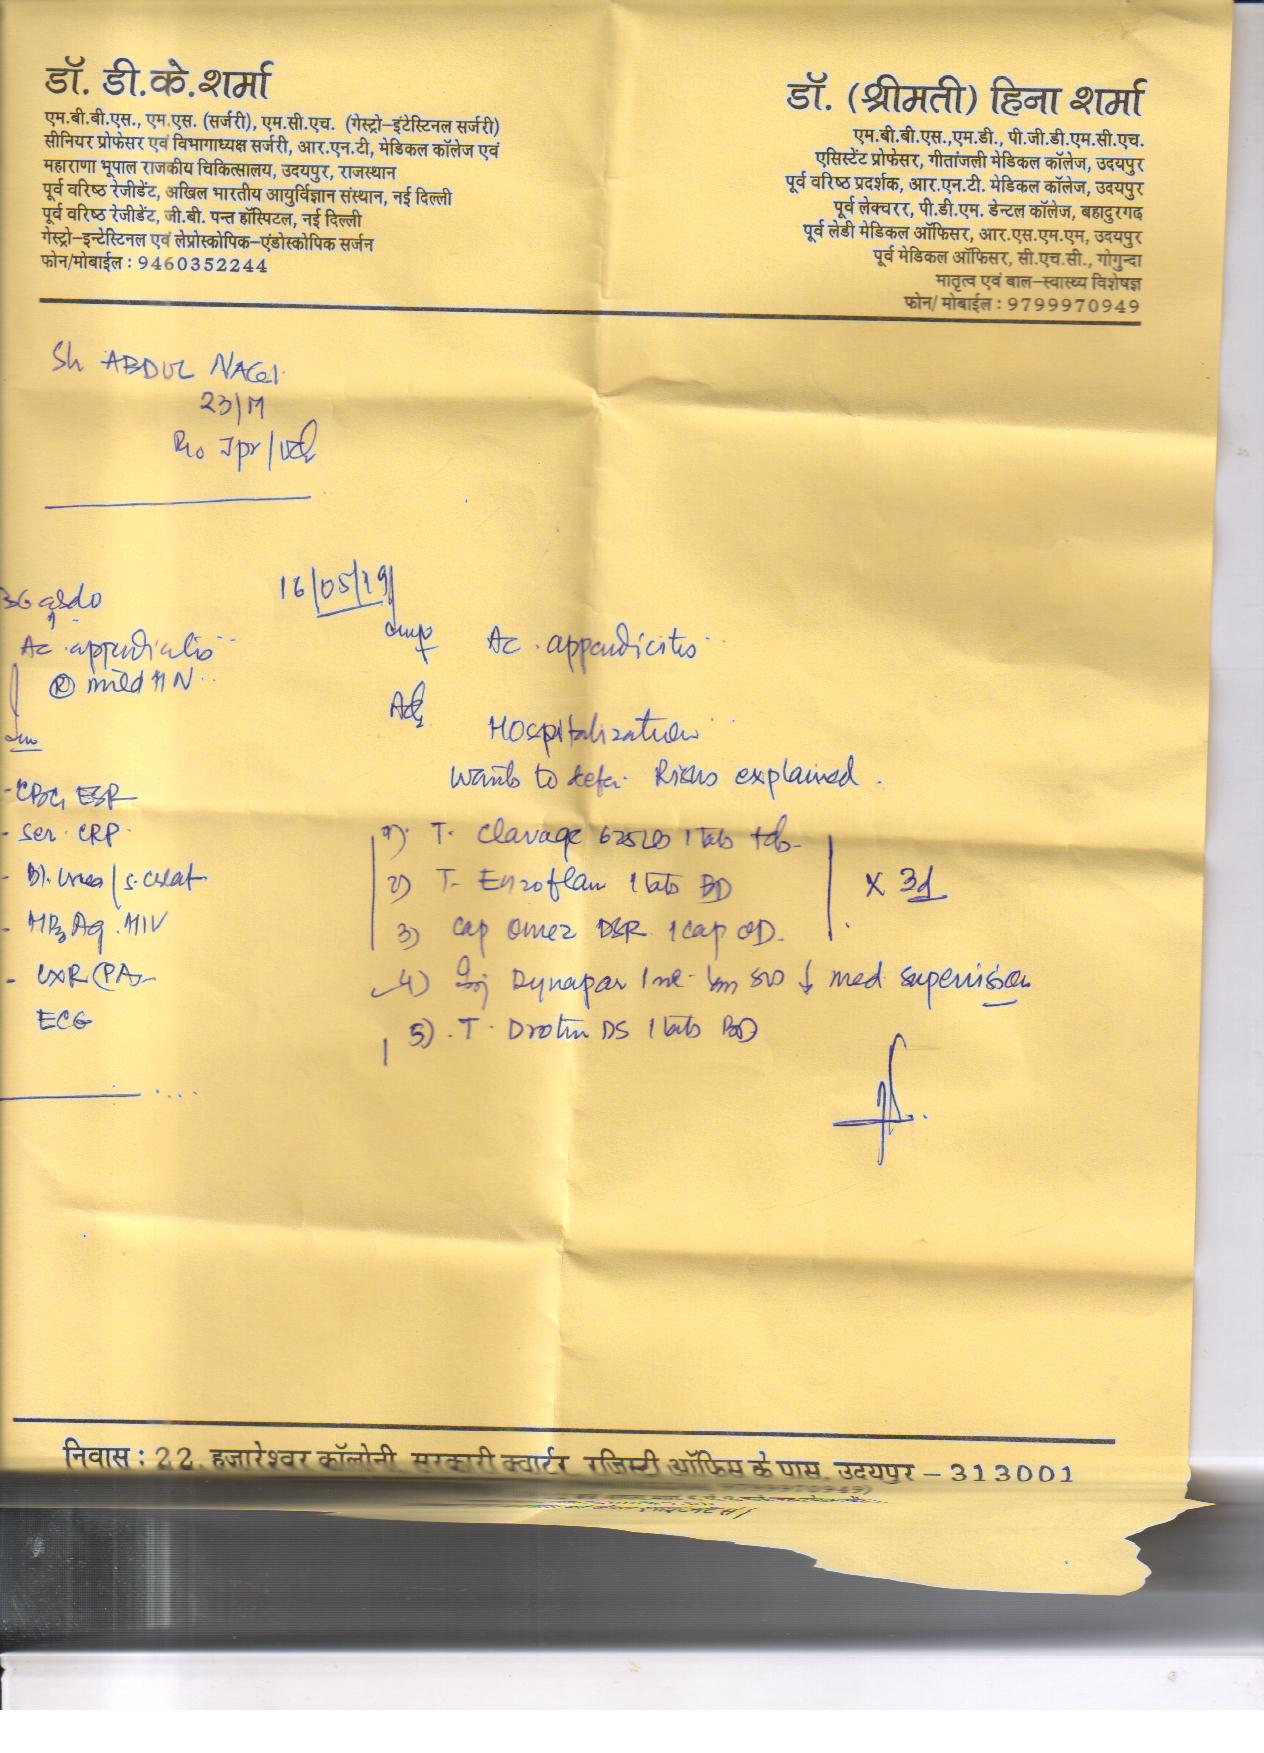 डॉ. डी.के.शर्मा
एम.बी.बी.एस., एम.एस. (सर्जरी), एम.सी.एच. (गेस्ट्रो-इंटेस्टिनल सर्जरी)
सीनियर प्रोफेसर एवं विभागाध्यक्ष सर्जरी, आर.एन.टी, मेडिकल कॉलेज एवं
महाराणा भूपाल राजकीय चिकित्सालय, उदयपुर, राजस्थान
पूर्व वरिष्ठ रेजीडेंट, अखिल भारतीय आयुर्विज्ञान संस्थान, नई दिल्ली
पूर्व वरिष्ठ रेजीडेंट, जी.बी. पन्त हॉस्पिटल, नई दिल्ली
गेस्ट्रो-इन्टेस्टिनल एवं लेप्रोस्कोपिक-एंडोस्कोपिक सर्जन
फोन/मोबाईल : 9460352244
डॉ. (श्रीमती) हिना शर्मा
एम.बी.बी.एस.,एम.डी., पी.जी.डी.एम.सी.एच.
एसिस्टेंट प्रोफेसर, गीतांजली मेडिकल कॉलेज, उदयपुर
पूर्व वरिष्ठ प्रदर्शक, आर.एन.टी. मेडिकल कॉलेज, उदयपुर
पूर्व लेक्चरर, पी.डी.एम. डेन्टल कॉलेज, बहादुरगढ
पूर्व लेडी मेडिकल ऑफिसर, आर.एस.एम.एम, उदयपुर
पूर्व मेडिकल ऑफिसर, सी.एच.सी., गोगुन्दा
मातृत्व एवं बाल-स्वास्थ्य विशेषज्ञ
फोन/ मोबाईल : 9799970949
Sh ABDUL
23/M
R/o Jpr/
16/05/19
Ac. appendicitis
(R) mild HN
- CBC, ESR
- Ser. CRP
- Bl. Urea / S. creat
- HBsAg. HIV
- CXR (PA)
ECG
Imp Ac. appendicitis
Adv
Hospitalization
Wants to defer. Risks explained.
1) T. Clavage 625 1 tab tds
2) T. Enzoflam 1 tab BD
3) Cap Omez DSR 1 cap OD.
x 3d
4) Inj Dynapar 1 ml Im med supervision
5) T. Drotin DS 1 tab BD
निवास : 22, हजारेश्वर कॉलोनी, सरकारी क्वार्टर, रजिस्ट्री ऑफिस के पास, उदयपुर – 313001